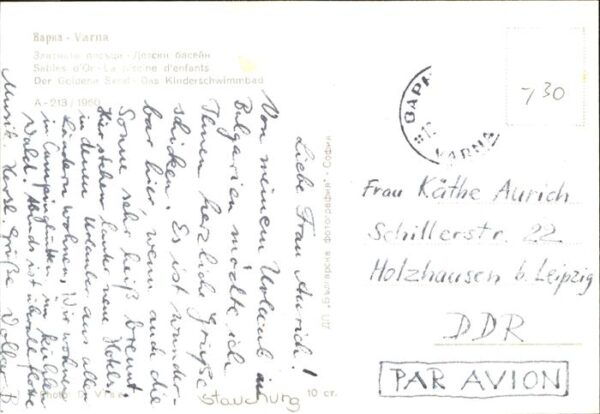 Варна - Varna
Златните пясъци - Детски басейн
Sables d'Or - La piscine d'enfants
Der Goldene Sand - Das Kinderschwimmbad
A-213/1960
Liebe Frau Aurich!
Von meinem Urlaub in
Bulgarien möchte ich
Ihnen herzliche Grüße
schicken. Es ist wunder-
bar hier, wenn auch die
Sonne sehr heiß brennt.
Hier stehen lauter neue Hotels,
in denen Urlauber aus allen
Ländern wohnen. Wir wohnen
in Campinghütten im kühlen
Wald. Abends ist überall
Musik. Herzl. Grüße
ДП „Българска фотография" - София
10 ст.
Photo D.
stauchung
ВАРНА
VARNA
730
Frau Käthe Aurich
Schillerstr. 22
Holzhausen b. Leipzig
DDR
PAR AVION